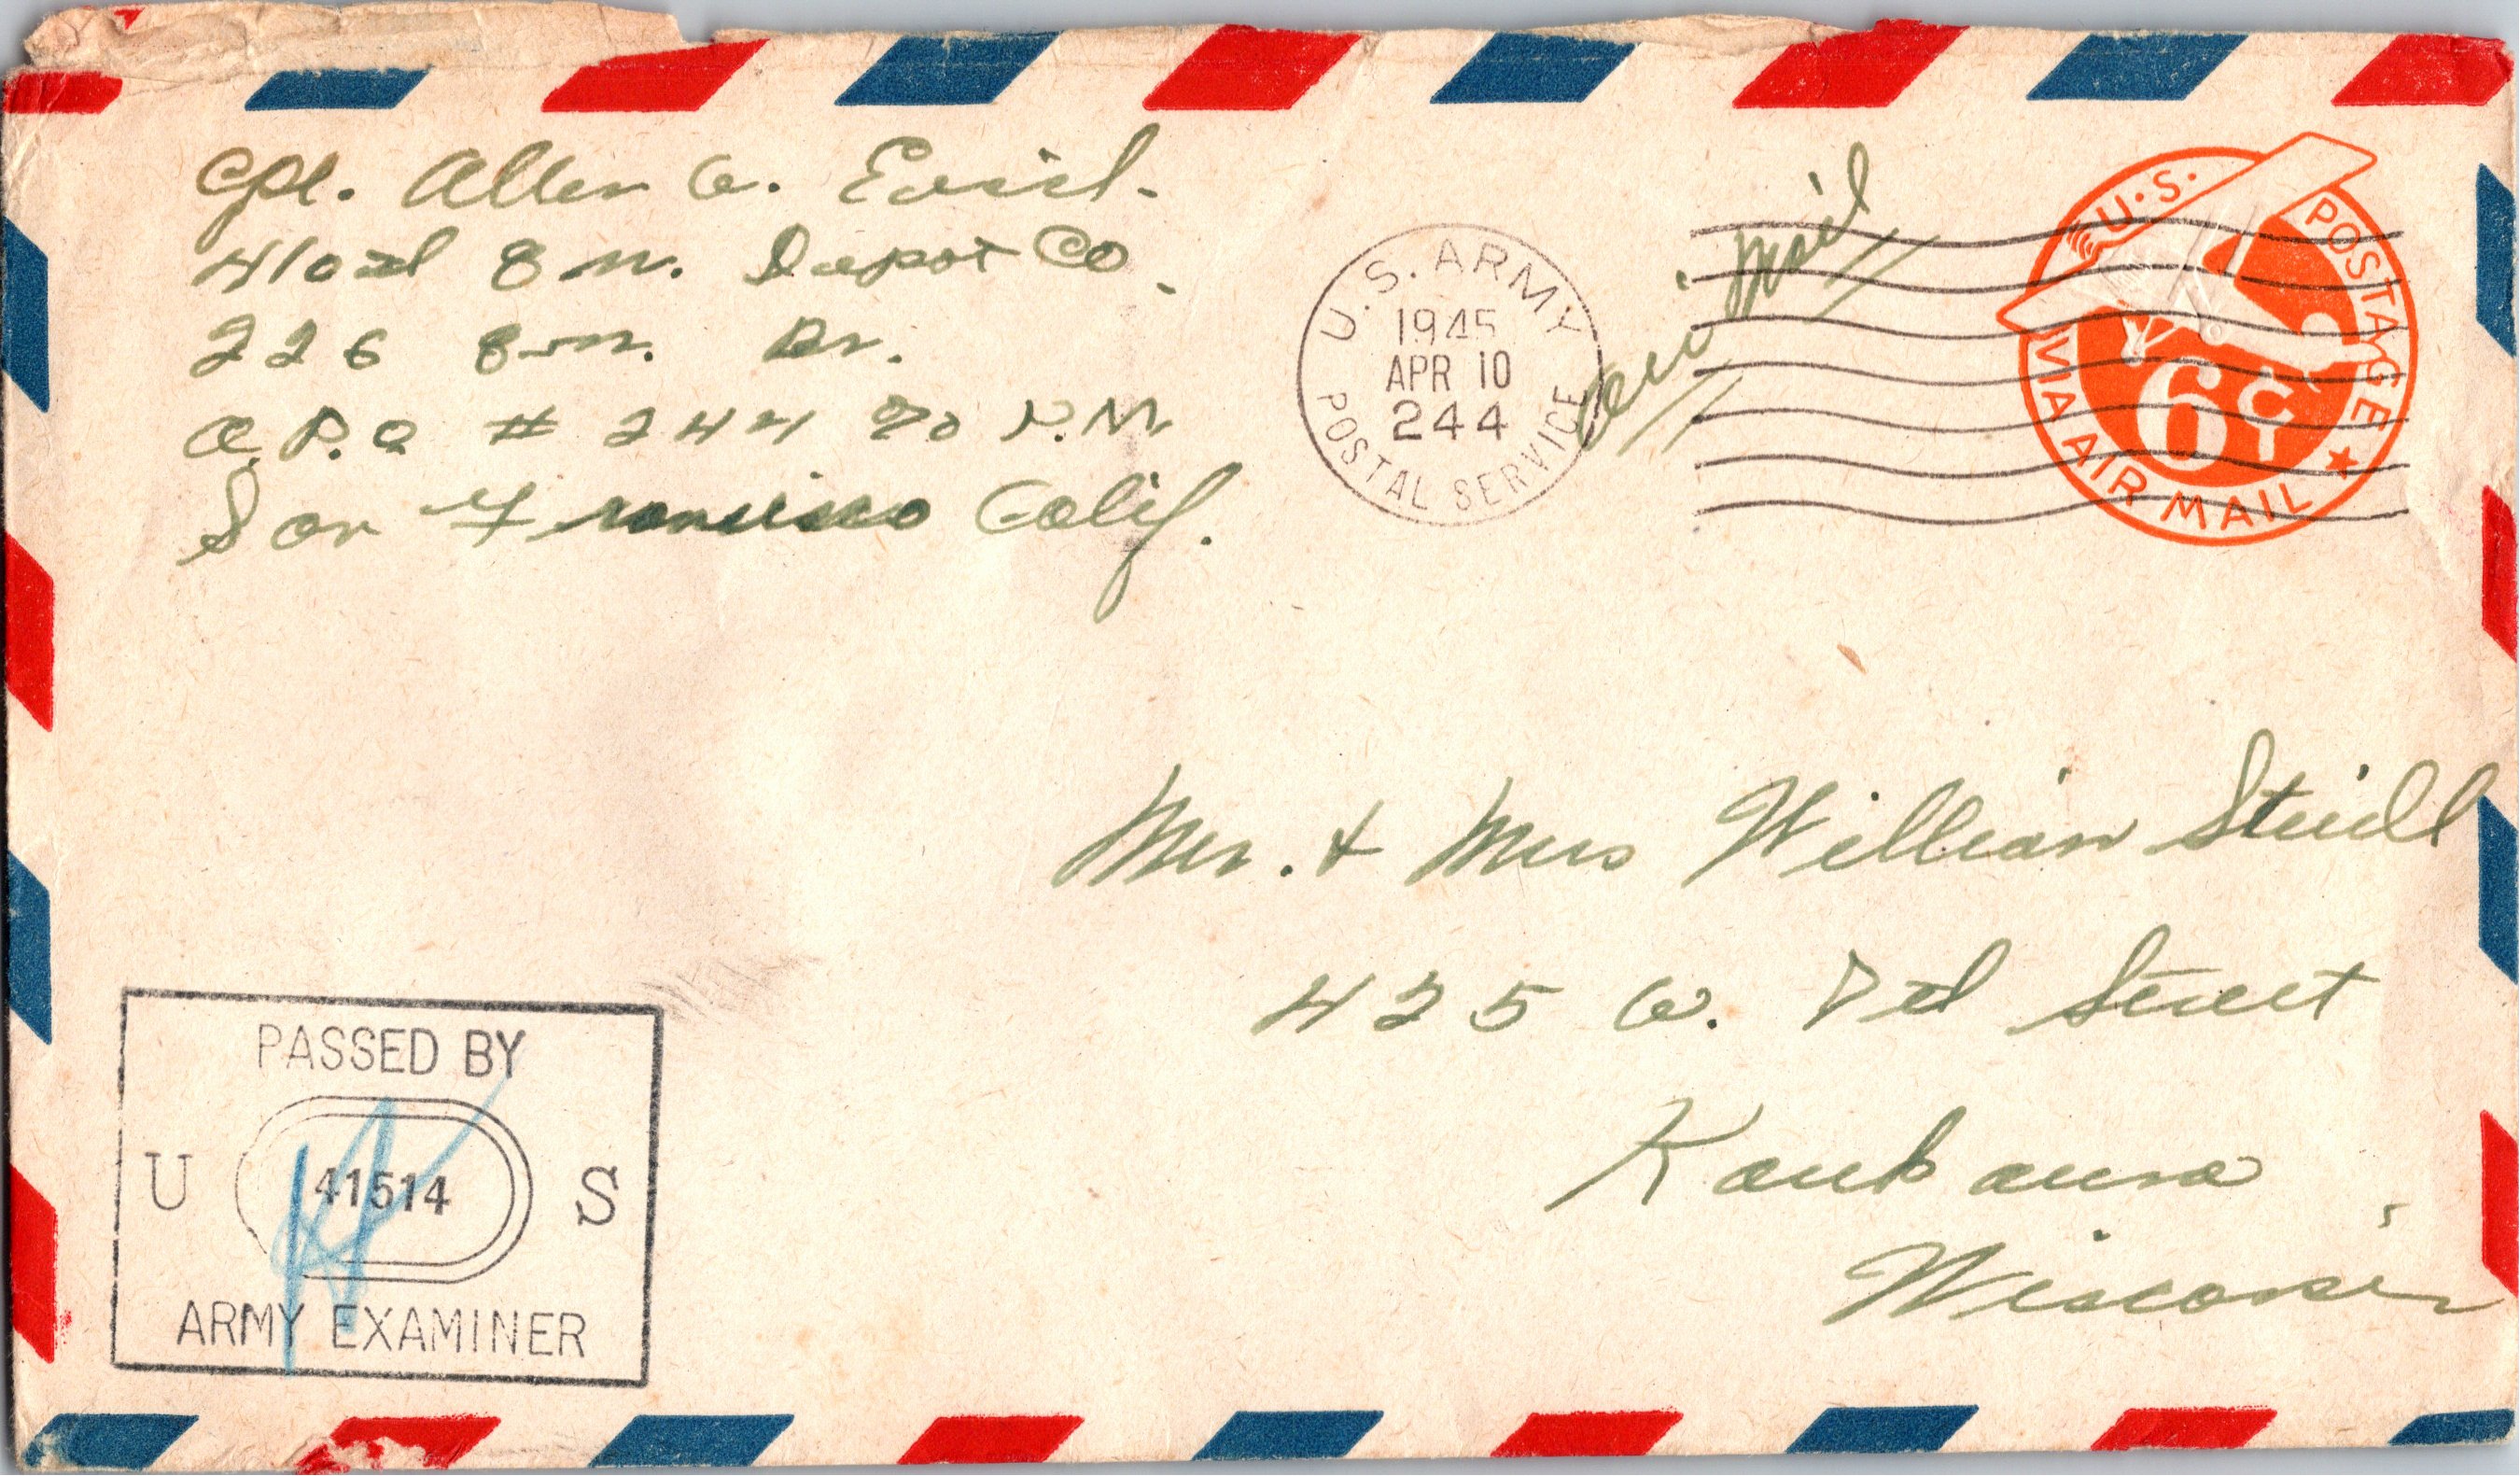 Cpl. Allen W.
Depot Co.
226 Bn.
A.P.O # 244 % P.M.
San Francisco Calif.
U.S. ARMY
1945
APR 10
244
POSTAL SERVICE
Air Mail
U.S. POSTAGE
6¢
VIA AIR MAIL
Mr. & Mrs William
425 W. Street
Kaukauna,
Wisconsin
PASSED BY
U 41514 S
ARMY EXAMINER